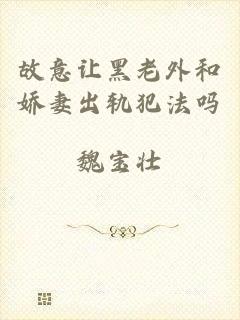 故意让黑老外和
娇妻出轨犯法吗
魏宝壮